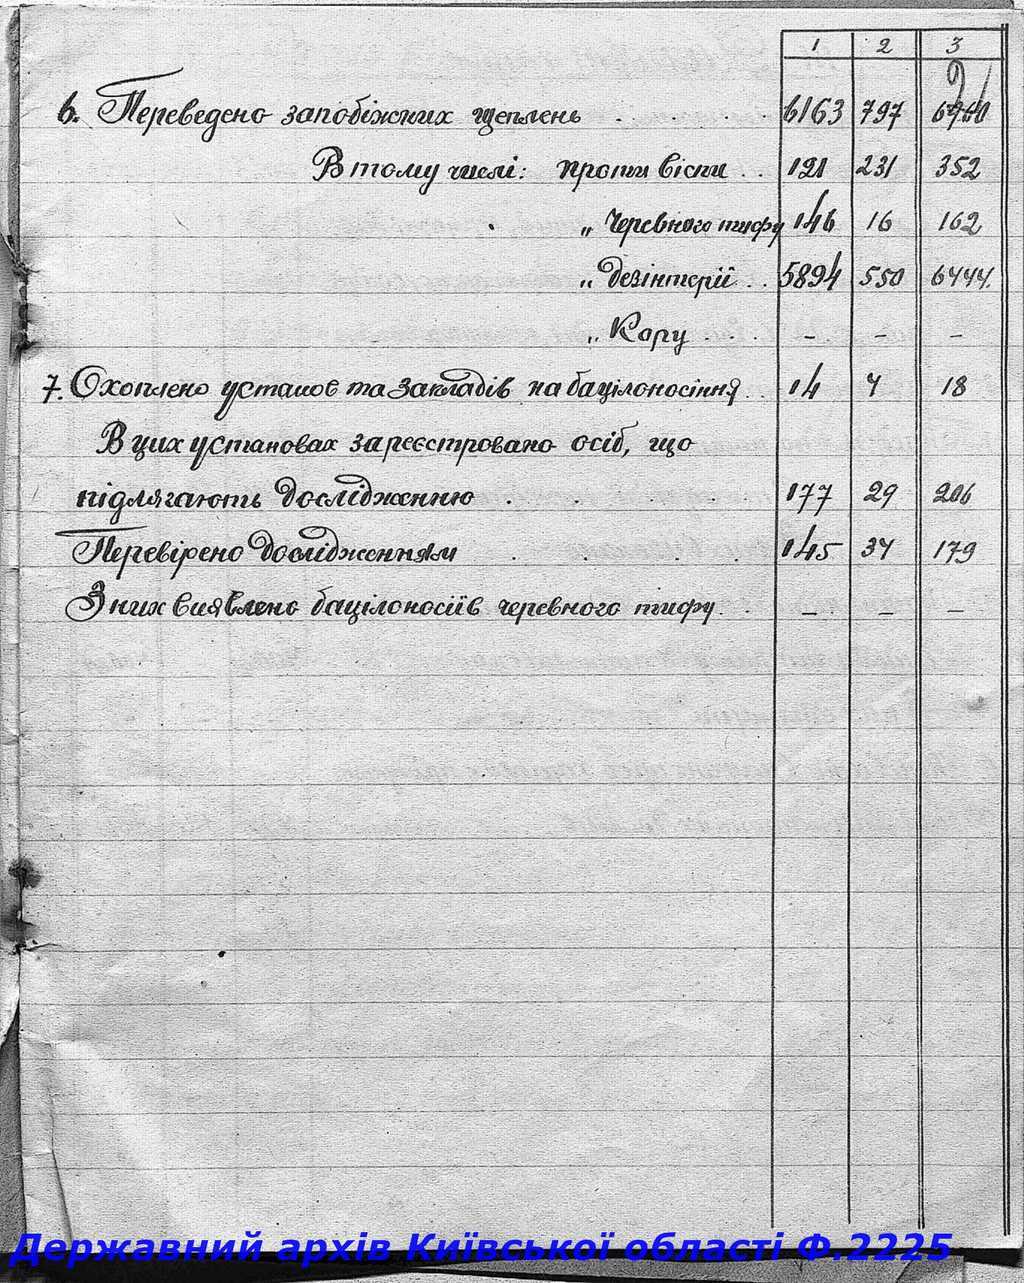 1 2 3
6. Переведено запобіжних щеплень . 6163 797
В тому числі: проти віспи . . 121 231 352
„ Черевного тифу 146 16 162
„ дезінтерії . . 5894 550 6444.
„ Кору . . . - - -
7. Охоплено установ та закладів на бацілоносіння . . 14 4 18
В цих установах зареєстровано осіб, що
підлягають дослідженню . . . 177 29 206
Перевірено дослідженням . . . . 145 34 179
З них виявлено бацілоносіїв черевного тифу. . . - - -
Державний архів Київської області Ф.2225